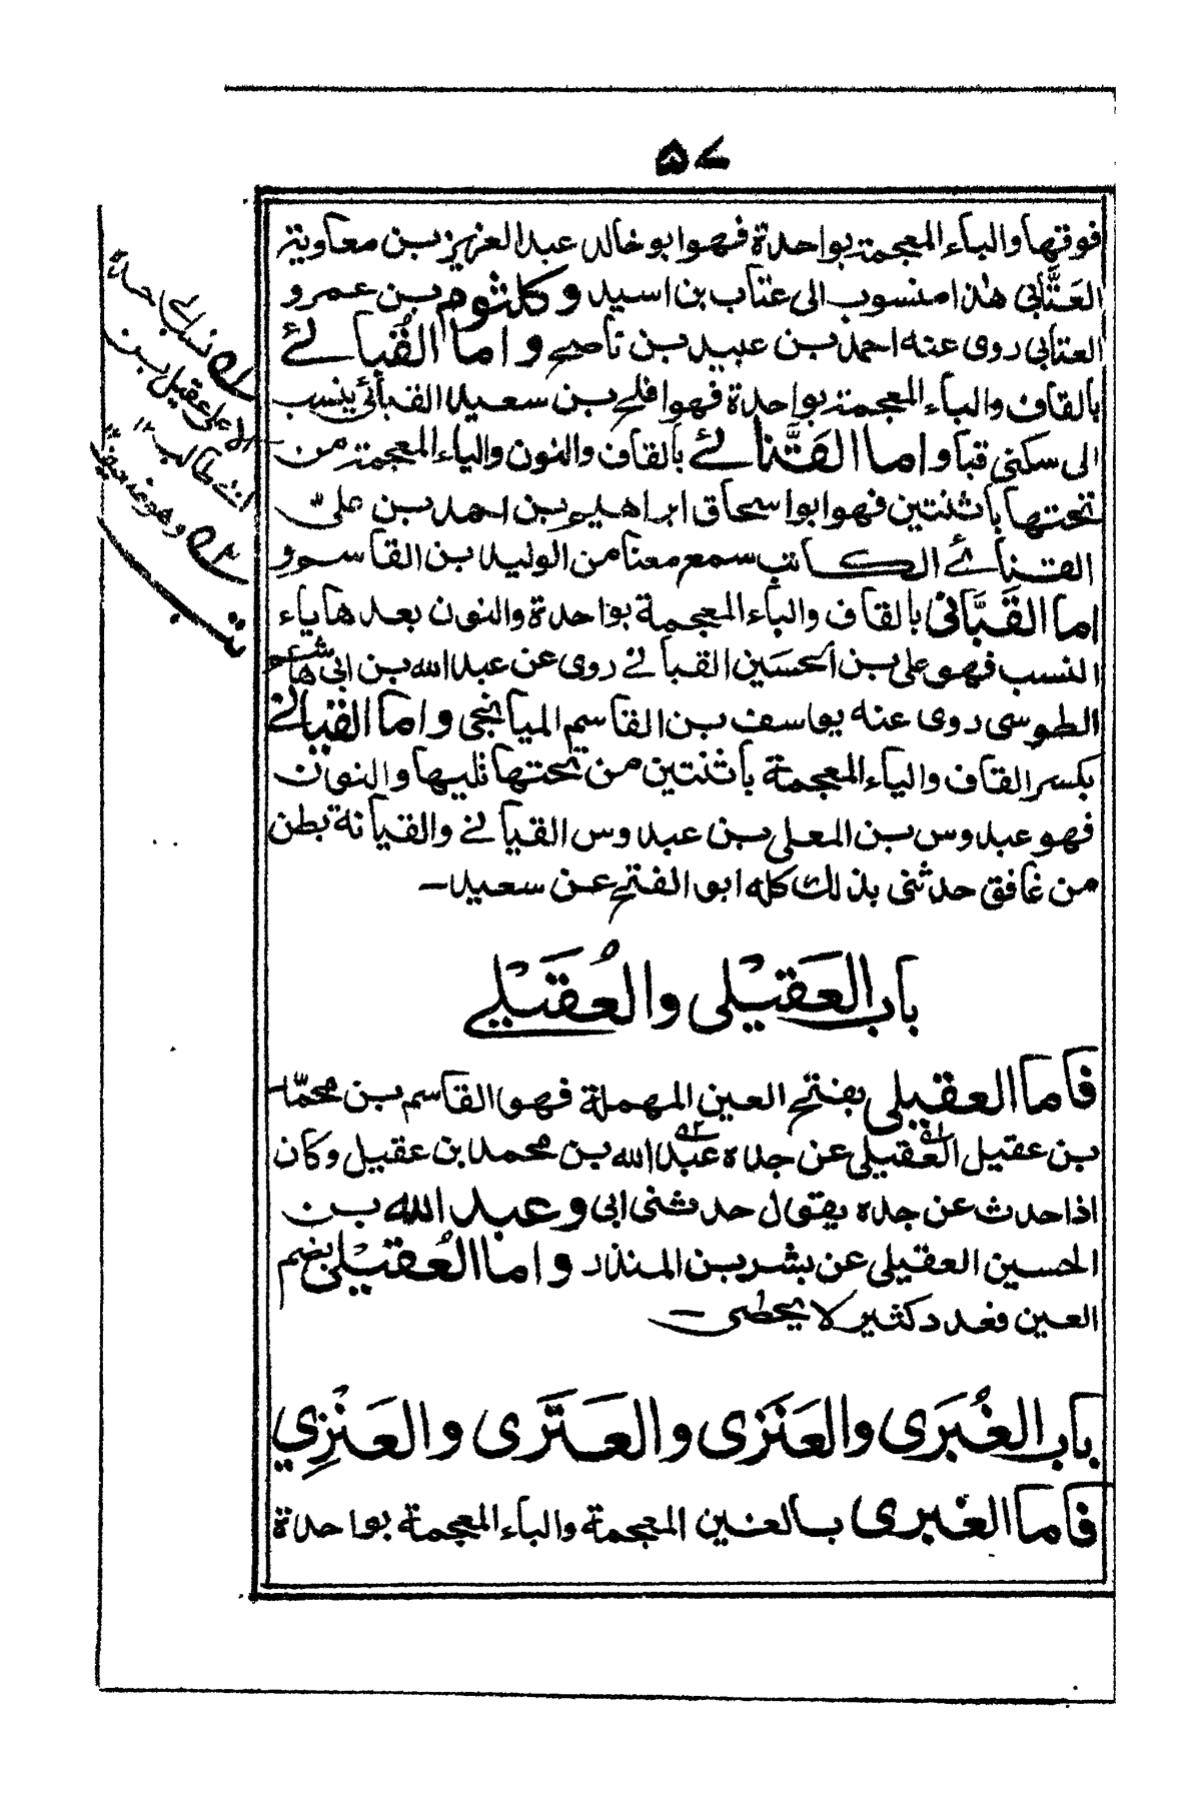 ۵۷
فوقها والباء المعجمة بواحدة فهو ابو خالد عبد العزيز بن معاوية
العَتَّابي هذا منسوب الى عتاب بن اسيد وكلثوم بن عمرو
العتابي روى عنه احمد بن عبيد بن ناصح واما القُبائے
بالقاف والباء المعجمة بواحدة فهو افلح بن سعيد القبائي ينسب
الى سكنى قبا واما القَنَّائے بالقاف والنون والياء المعجمة من
تحتها باثنتين فهو ابو اسحاق ابراهيم بن احمد بن علي
القنائے الكاتب سمع معنا من الوليد بن القاسم و
اما القَبَّانی بالقاف والباء المعجمة بواحدة والنون بعدها ياء
النسب فهو علی بن الحسين القبانے روى عن عبد الله بن ابی هاشم
الطوسی روى عنه يوسف بن القاسم الميانجی واما القيانے
بكسر القاف والياء المعجمة باثنتين من تحتها تليها والنون
فهو عبدوس بن المعلی بن عبدوس القيانے والقيانة بطن
من غافق حدثنی بذلك كله ابو الفتح عن سعيد
باب العَقيْلی والعُقَيْلے
فاما العقيلی بفتح العين المهملة فهو القاسم بن محمّد
بن عقيل العقيلی عن جده عبد الله بن محمد بن عقيل وكان
اذا حدث عن جده يقول حدثنی ابی وعبد الله بن
الحسين العقيلی عن بشر بن المنذر واما العُقيْلی بضم
العين فعدد كثير لا يحطى
باب الغُبَری والعَنَزی والعَتَری والعَنْزِي
فاما الغبری بالغين المعجمة والباء المعجمة بواحدة
له نسب الى جده
الاعلى عقيل بن
ابی طالب ۱۲